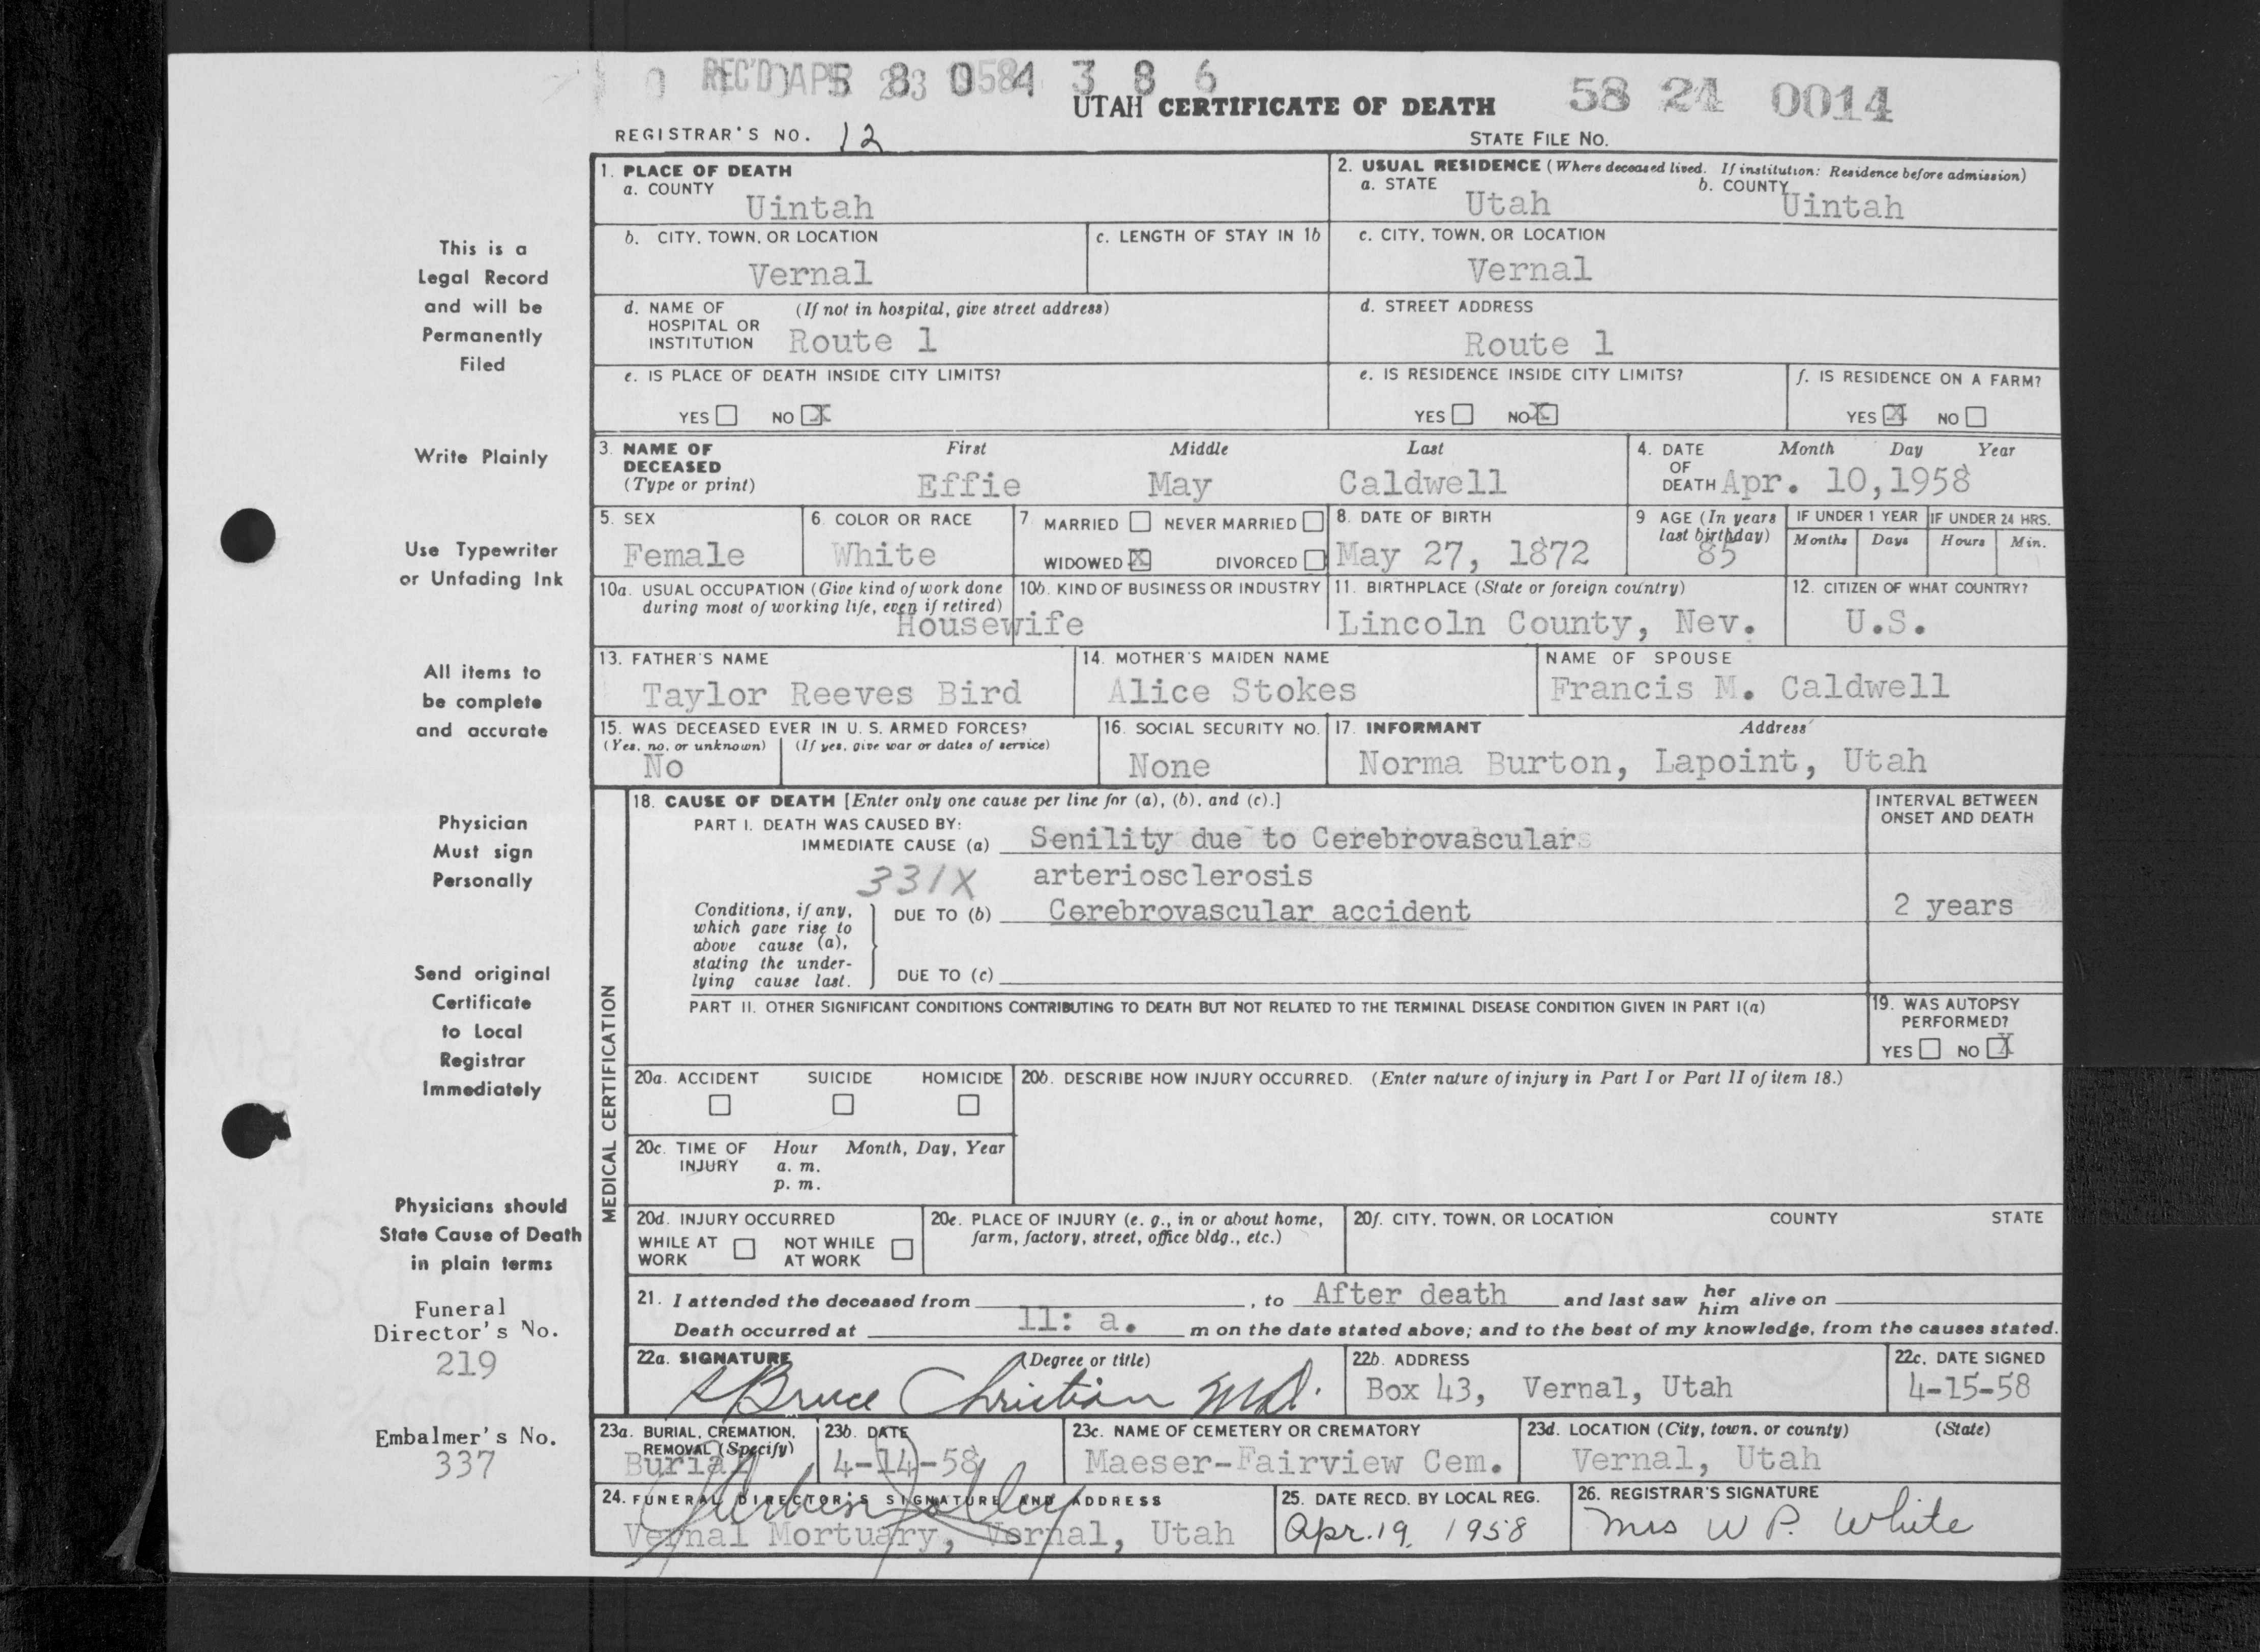 REC'D APR 23 1958
5 8 0 4 3 8 6
58 24 0014
UTAH CERTIFICATE OF DEATH
REGISTRAR'S NO. 12
STATE FILE NO.
1. PLACE OF DEATH
a. COUNTY
Uintah
2. USUAL RESIDENCE (Where deceased lived. If institution: Residence before admission)
a. STATE
Utah
b. COUNTY
Uintah
b. CITY, TOWN, OR LOCATION
Vernal
c. LENGTH OF STAY IN 1b
c. CITY, TOWN, OR LOCATION
Vernal
d. NAME OF HOSPITAL OR INSTITUTION
(If not in hospital, give street address)
Route 1
d. STREET ADDRESS
Route 1
e. IS PLACE OF DEATH INSIDE CITY LIMITS?
YES NO X
e. IS RESIDENCE INSIDE CITY LIMITS?
YES NO X
f. IS RESIDENCE ON A FARM?
YES X NO
3. NAME OF DECEASED (Type or print)
First Middle Last
Effie May Caldwell
4. DATE OF DEATH
Month Day Year
Apr. 10, 1958
5. SEX
Female
6. COLOR OR RACE
White
7 MARRIED NEVER MARRIED
WIDOWED X DIVORCED
8. DATE OF BIRTH
May 27, 1872
9 AGE (In years last birthday)
85
IF UNDER 1 YEAR
Months Days
IF UNDER 24 HRS.
Hours Min.
10a. USUAL OCCUPATION (Give kind of work done during most of working life, even if retired)
Housewife
10b. KIND OF BUSINESS OR INDUSTRY
11. BIRTHPLACE (State or foreign country)
Lincoln County, Nev.
12. CITIZEN OF WHAT COUNTRY?
U.S.
13. FATHER'S NAME
Taylor Reeves Bird
14. MOTHER'S MAIDEN NAME
Alice Stokes
NAME OF SPOUSE
Francis M. Caldwell
15. WAS DECEASED EVER IN U. S. ARMED FORCES?
(Yes, no, or unknown) (If yes, give war or dates of service)
No
16. SOCIAL SECURITY NO.
None
17. INFORMANT Address
Norma Burton, Lapoint, Utah
MEDICAL CERTIFICATION
18. CAUSE OF DEATH [Enter only one cause per line for (a), (b), and (c).]
INTERVAL BETWEEN ONSET AND DEATH
PART I. DEATH WAS CAUSED BY:
IMMEDIATE CAUSE (a) Senility due to Cerebrovascular
331X arteriosclerosis
Conditions, if any, which gave rise to above cause (a), stating the underlying cause last.
DUE TO (b) Cerebrovascular accident
2 years
DUE TO (c)
PART II. OTHER SIGNIFICANT CONDITIONS CONTRIBUTING TO DEATH BUT NOT RELATED TO THE TERMINAL DISEASE CONDITION GIVEN IN PART I(a)
19. WAS AUTOPSY PERFORMED?
YES NO X
20a. ACCIDENT SUICIDE HOMICIDE
20b. DESCRIBE HOW INJURY OCCURRED. (Enter nature of injury in Part I or Part II of item 18.)
20c. TIME OF INJURY
Hour Month, Day, Year
a. m.
p. m.
20d. INJURY OCCURRED
WHILE AT WORK NOT WHILE AT WORK
20e. PLACE OF INJURY (e. g., in or about home, farm, factory, street, office bldg., etc.)
20f. CITY, TOWN, OR LOCATION COUNTY STATE
21. I attended the deceased from , to After death and last saw her him alive on
Death occurred at 11: a. m on the date stated above; and to the best of my knowledge, from the causes stated.
22a. SIGNATURE (Degree or title)
Bruce Christian MD.
22b. ADDRESS
Box 43, Vernal, Utah
22c. DATE SIGNED
4-15-58
23a. BURIAL, CREMATION, REMOVAL (Specify)
Burial
23b. DATE
4-14-58
23c. NAME OF CEMETERY OR CREMATORY
Maeser-Fairview Cem.
23d. LOCATION (City, town, or county) (State)
Vernal, Utah
24. FUNERAL DIRECTOR'S SIGNATURE AND ADDRESS
Vernal Mortuary, Vernal, Utah
25. DATE RECD. BY LOCAL REG.
Apr. 19, 1958
26. REGISTRAR'S SIGNATURE
Mrs W P. White
This is a
Legal Record
and will be
Permanently
Filed
Write Plainly
Use Typewriter
or Unfading Ink
All items to
be complete
and accurate
Physician
Must sign
Personally
Send original
Certificate
to Local
Registrar
Immediately
Physicians should
State Cause of Death
in plain terms
Funeral
Director's No.
219
Embalmer's No.
337